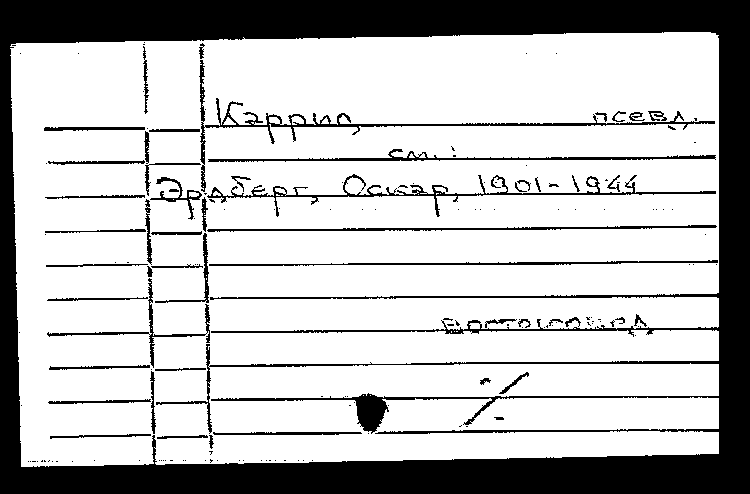 Кэррил, псевд.
см.:
Эрдберг, Оскар, 1901-1944
востоковед